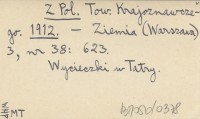 Z Pol. Tow. Krajoznawcze-
go. 1912. — Ziemia (Warszawa)
3, nr 38: 623.
Wycieczki w Tatry.
MT